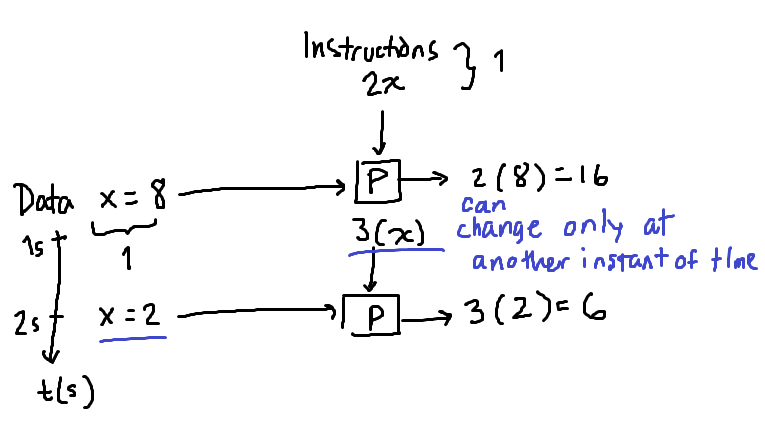 Instructions
2x } 1
Data x = 8
P
2(8)=16
1
3(x)
can
change only at
another instant of time
1s
2s
x = 2
P
3(2)= 6
t(s)